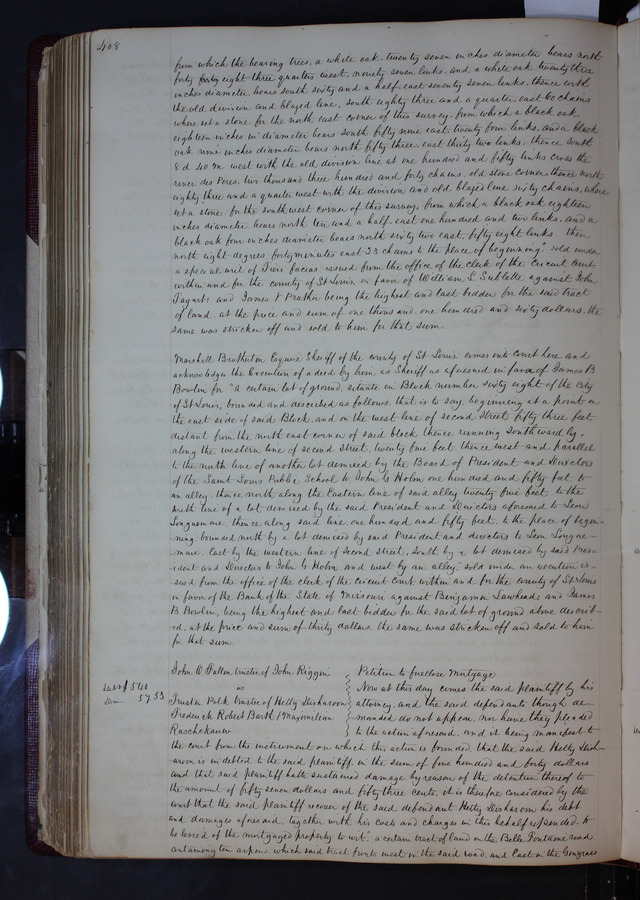 408
from which the bearing trees, a white oak twenty seven inches diameter bears north
forty eight three quarters west, ninety seven links, and a white oak twenty three
inches diameter bears south sixty and a half east seventy seven links, thence with
the old division and blazed line, south eighty three and a quarter east 60 chains
where set a stone for the north east corner of this survey, from which a black oak
eighteen inches in diameter bears South fifty nine east, twenty four links, and a black
oak nine inches diameter bears north fifty three, east thirty two links, thence South
8 d 40 m west with the old division line at one hundred and fifty links cross the
river des Peres, two thousand three hundred and forty chains, old stone corner, thence north
eighty three and a quarter west with the division and old blazed line sixty chains, where
set a stone for the southwest corner of this survey, from which a black oak eighteen
inches diameter bears north ten and a half east one hundred and two links, and a
black oak four inches diameter bears north sixty two east, fifty eight links, then
north eight degrees forty minutes east 23 chains to the place of beginning" sold under
a special writ of Fieri facias issued from the office of the clerk of the Circuit Court
within and for the county of St Louis, in favor of William L Sublette against John
Taggart; and James V Prather being the highest and last bidder for the said tract
of land, at the price and sum of one thousand, one hundred and sixty dollars, the
same was stricken off and sold to him for that sum.
Marshall Brotherton Esquire Sheriff of the county of St Louis comes into Court here and
acknowledges the Execution of a deed by him as Sheriff as aforesaid in favor of James B
Bowlin for "a certain lot of ground, situate in Block number sixty eight of the City
of St Louis, bounded and described as follows, that is to say, beginning at a point on
the east side of said Block, and on the west line of second Street, fifty three feet
distant from the north east corner of said block thence running southward by,
along the western line of second street, twenty five feet, thence west and parallel
to the north line of another lot demised by the Board of President and Directors
of the Saint Louis Public School to John G Holm, one hundred and fifty feet to
an alley, thence north along the Eastern line of said alley twenty five feet, to the
south line of a lot demised by the said President and Directors aforesaid to Leon
Longuemare, thence along said line one hundred and fifty feet, to the place of begin-
ning, bounded north by a lot demised by said President and directors to Leon Longue-
mare, East by the western line of Second Street, South by a lot demised by said Pres-
ident and Directors to John G Holm, and west by an alley," sold under an execution is-
sued from the office of the clerk of the circuit court within and for the county of St Louis
in favor of the Bank of the State of Missouri against Benjamin Lawhead; and James
B Bowlin, being the highest and last bidder for the said lot of ground above describ-
ed, at the price and sum of thirty dollars, the same was stricken off and sold to him
for that sum.
John O'Fallon, trustee of John Riggin
vs
Trusten Polk trustee of Hetty Disharoon
Frederick Robert Barth & Maximilian
Raschekauw
Debt $540
Dam 57 53
Petition to foreclose Mortgage
Now at this day comes the said plaintiff by his
attorney, and the said defendants though de-
manded do not appear, nor have they pleaded
to the action aforesaid, and it being manifest to
the court from the instrument on which this action is founded, that the said Hetty Dish-
aroon is indebted to the said plaintiff in the sum of five hundred and forty dollars
and that said plaintiff hath sustained damage by reason of the detention thereof to
the amount of fifty seven dollars and fifty three cents, it is therefore considered by the
court that the said plaintiff recover of the said defendant Hetty Disharoon his debt
and damages aforesaid, together with his costs and charges in this behalf expended, to
be levied of the mortgaged property to wit: a certain tract of land on the Belle Fontaine road
containing ten arpens, which said tract fronts west on the said road, and East on the Gongrass